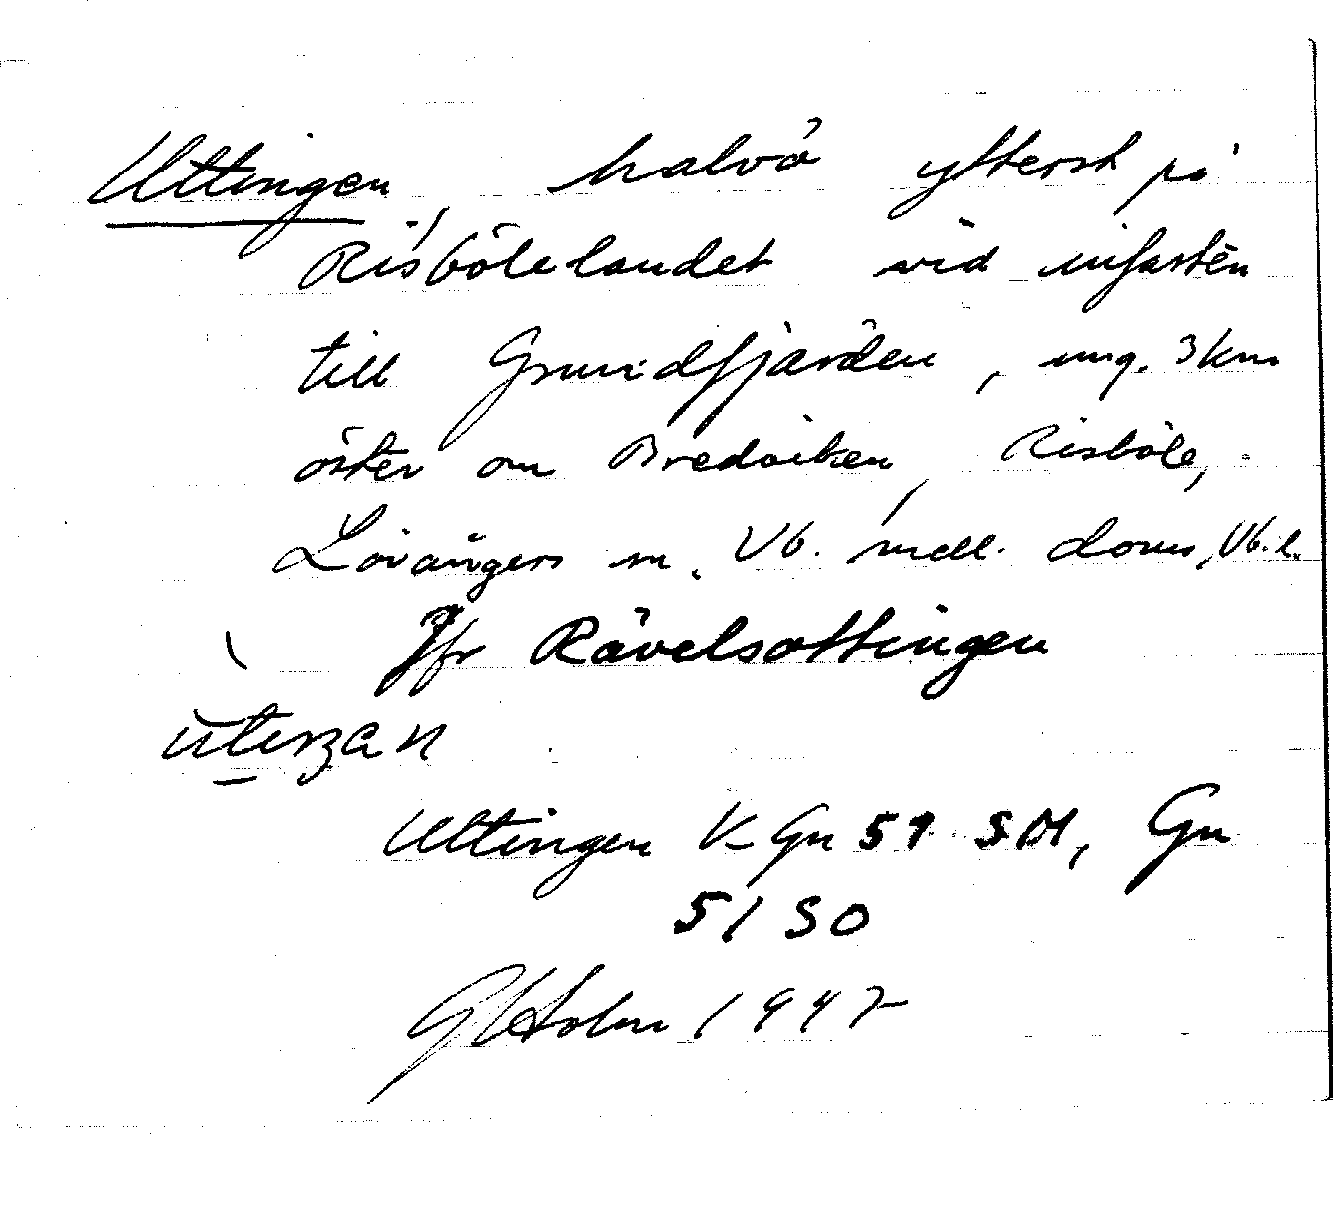 Uttingen, halvö ytterst på
Risbölelandet vid infarten
till Grundfjärden, ung. 3 km
öster om Bredviken, Risböle,
Lövångers sn. Vb. mell. doms, Vb. l.
Jfr Rävelsottingen
Uttingen K Gn 59 SM, Gn
51 SO
G Holm 1947